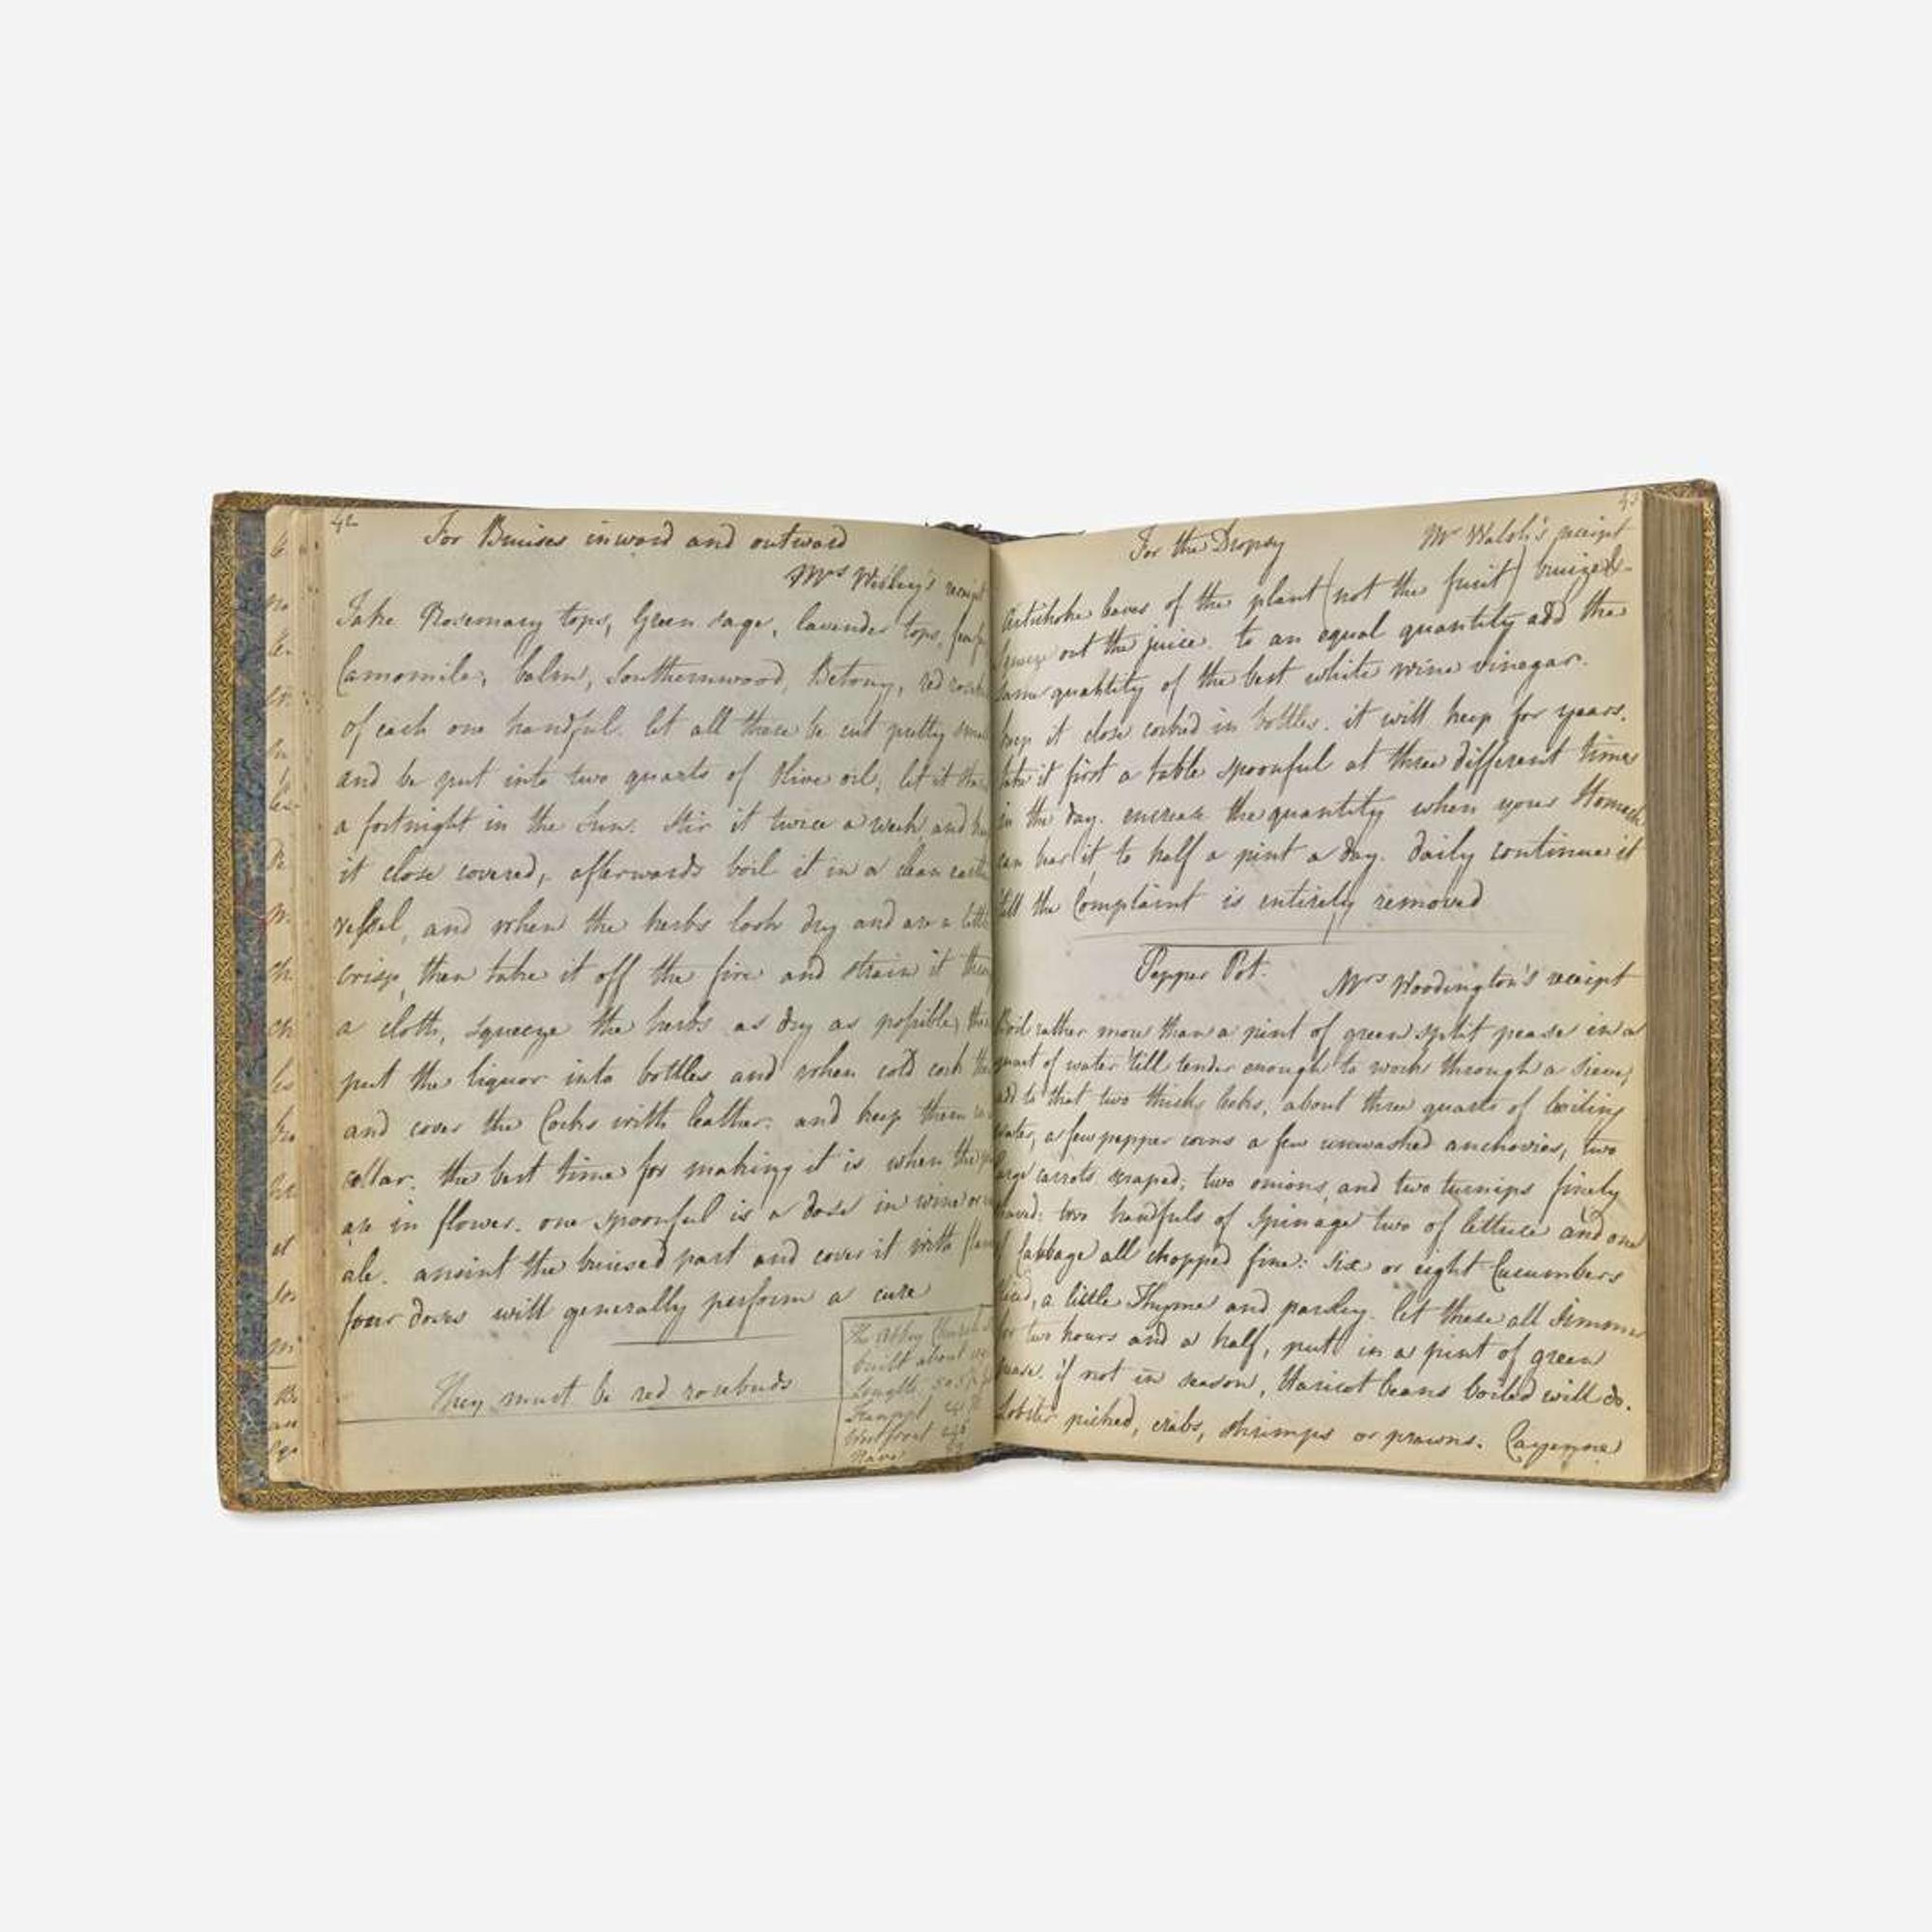 42
For Bruises inward and outward
Mrs receipt
Take Rosemary tops, Green sage, lavender tops,
Camomile, balm, Southernwood, Betony, red
of each one handful. let all these be cut pretty small
and be put into two quarts of Olive oil, let it
a fortnight in the Sun. Stir it twice a week, and
it close covered, afterwards boil it in a clean
vessel, and when the herbs look dry and are a little
crisp, then take it off the fire and strain it
a cloth, squeeze the herbs as dry as possible,
put the liquor into bottles and when cold cork
and cover the Corks with leather: and keep them
cellar. the best time for making it is when the
are in flower. one spoonful is a dose in wine or
ale. anoint the bruised part and cover it with
four doses will generally perform a cure
They must be red rosebuds
The Abby Church
built about
Length
West front
Nave
43
For the Dropsy
Mr Walsh's receipt
Artichoke leaves of the plant (not the fruit) bruized
out the juice. to an equal quantity add the
same quantity of the best white wine vinegar.
keep it close corked in bottles. it will keep for years.
take it first a table spoonful at three different times
in the day. encrease the quantity when your Stomach
can bear it, to half a pint a day. daily continue it
till the Complaint is entirely removed
Pepper Pot.
Mrs Woodington's receipt
Boil rather more than a pint of green split pease in a
quart of water 'till tender enough to work through a sieve,
add to that two thick leeks, about three quarts of boiling
water, a few pepper corns a few unwashed anchovies, two
large carrots scraped, two onions, and two turnips finely
two handfuls of Spinage two of lettuce and one
of Cabbage all chopped fine: Six or eight Cucumbers
sliced, a little Thyme and parsley. let these all Simmer
for two hours and a half, put in a pint of green
pease. if not in season, Haricot beans boiled will do.
Lobster picked, crabs, shrimps or prawns. Cayenne